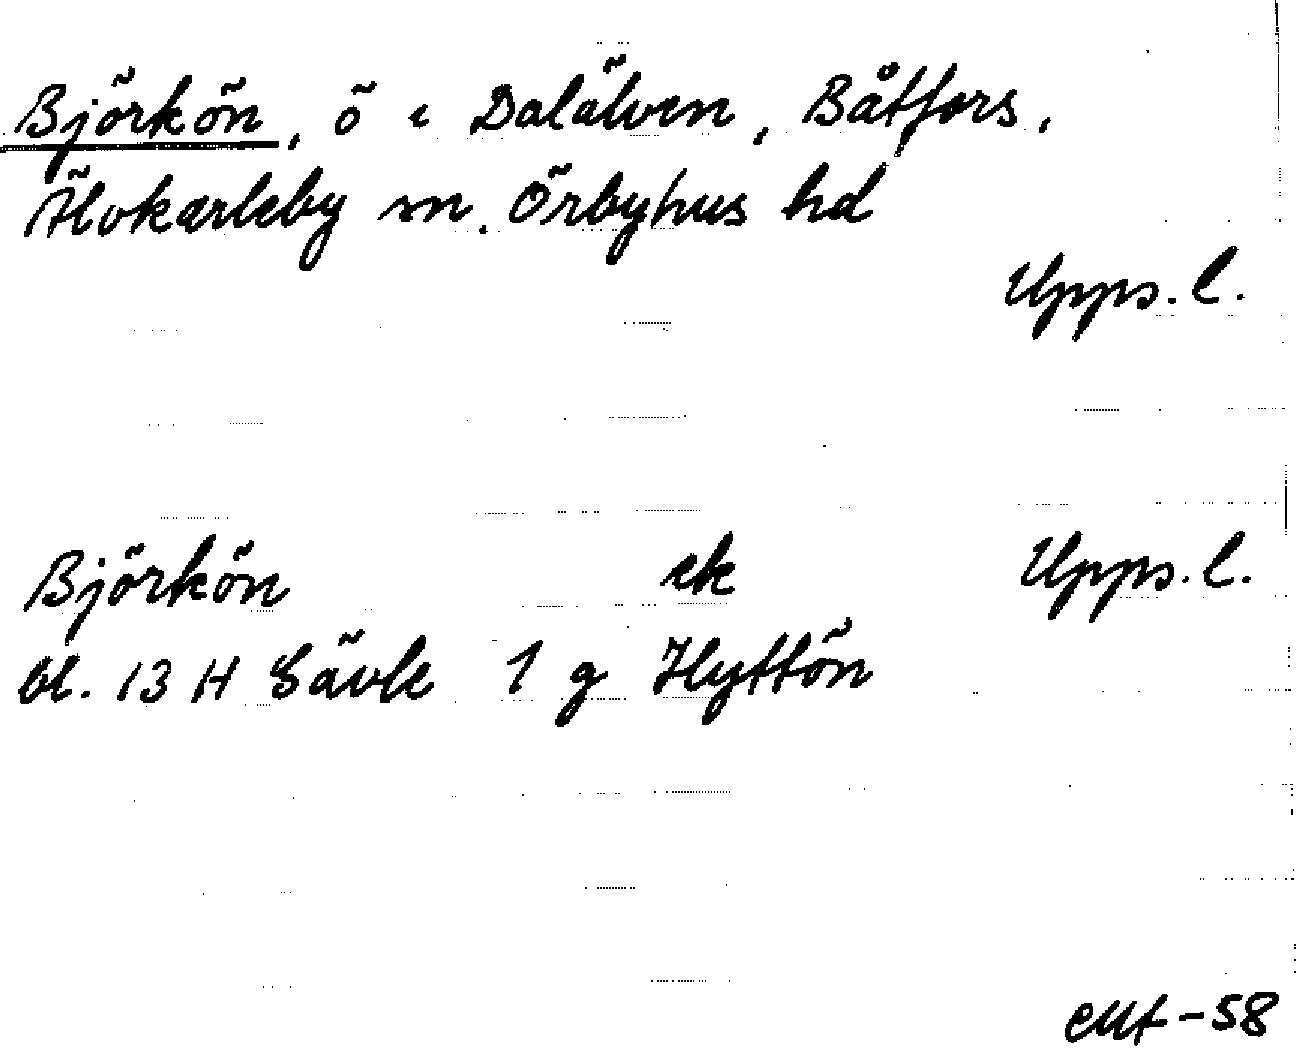 Björkön, ö i Dalälven, Båtfors,
Älvkarleby sn. Örbyhus hd
Upps. l.
Björkön ek Upps. l.
bl. 13 H Gävle 1 g Hyttön
-58